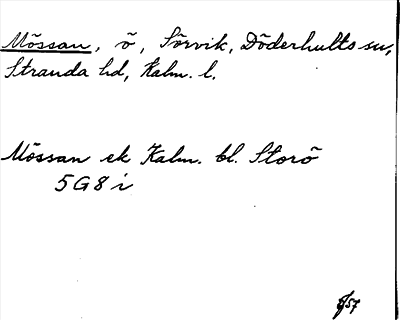 Mössan, ö, Sörvik, Döderhults sn,
Stranda hd, Kalm. l.
Mössan ek Kalm. bl. Storö
5G8i